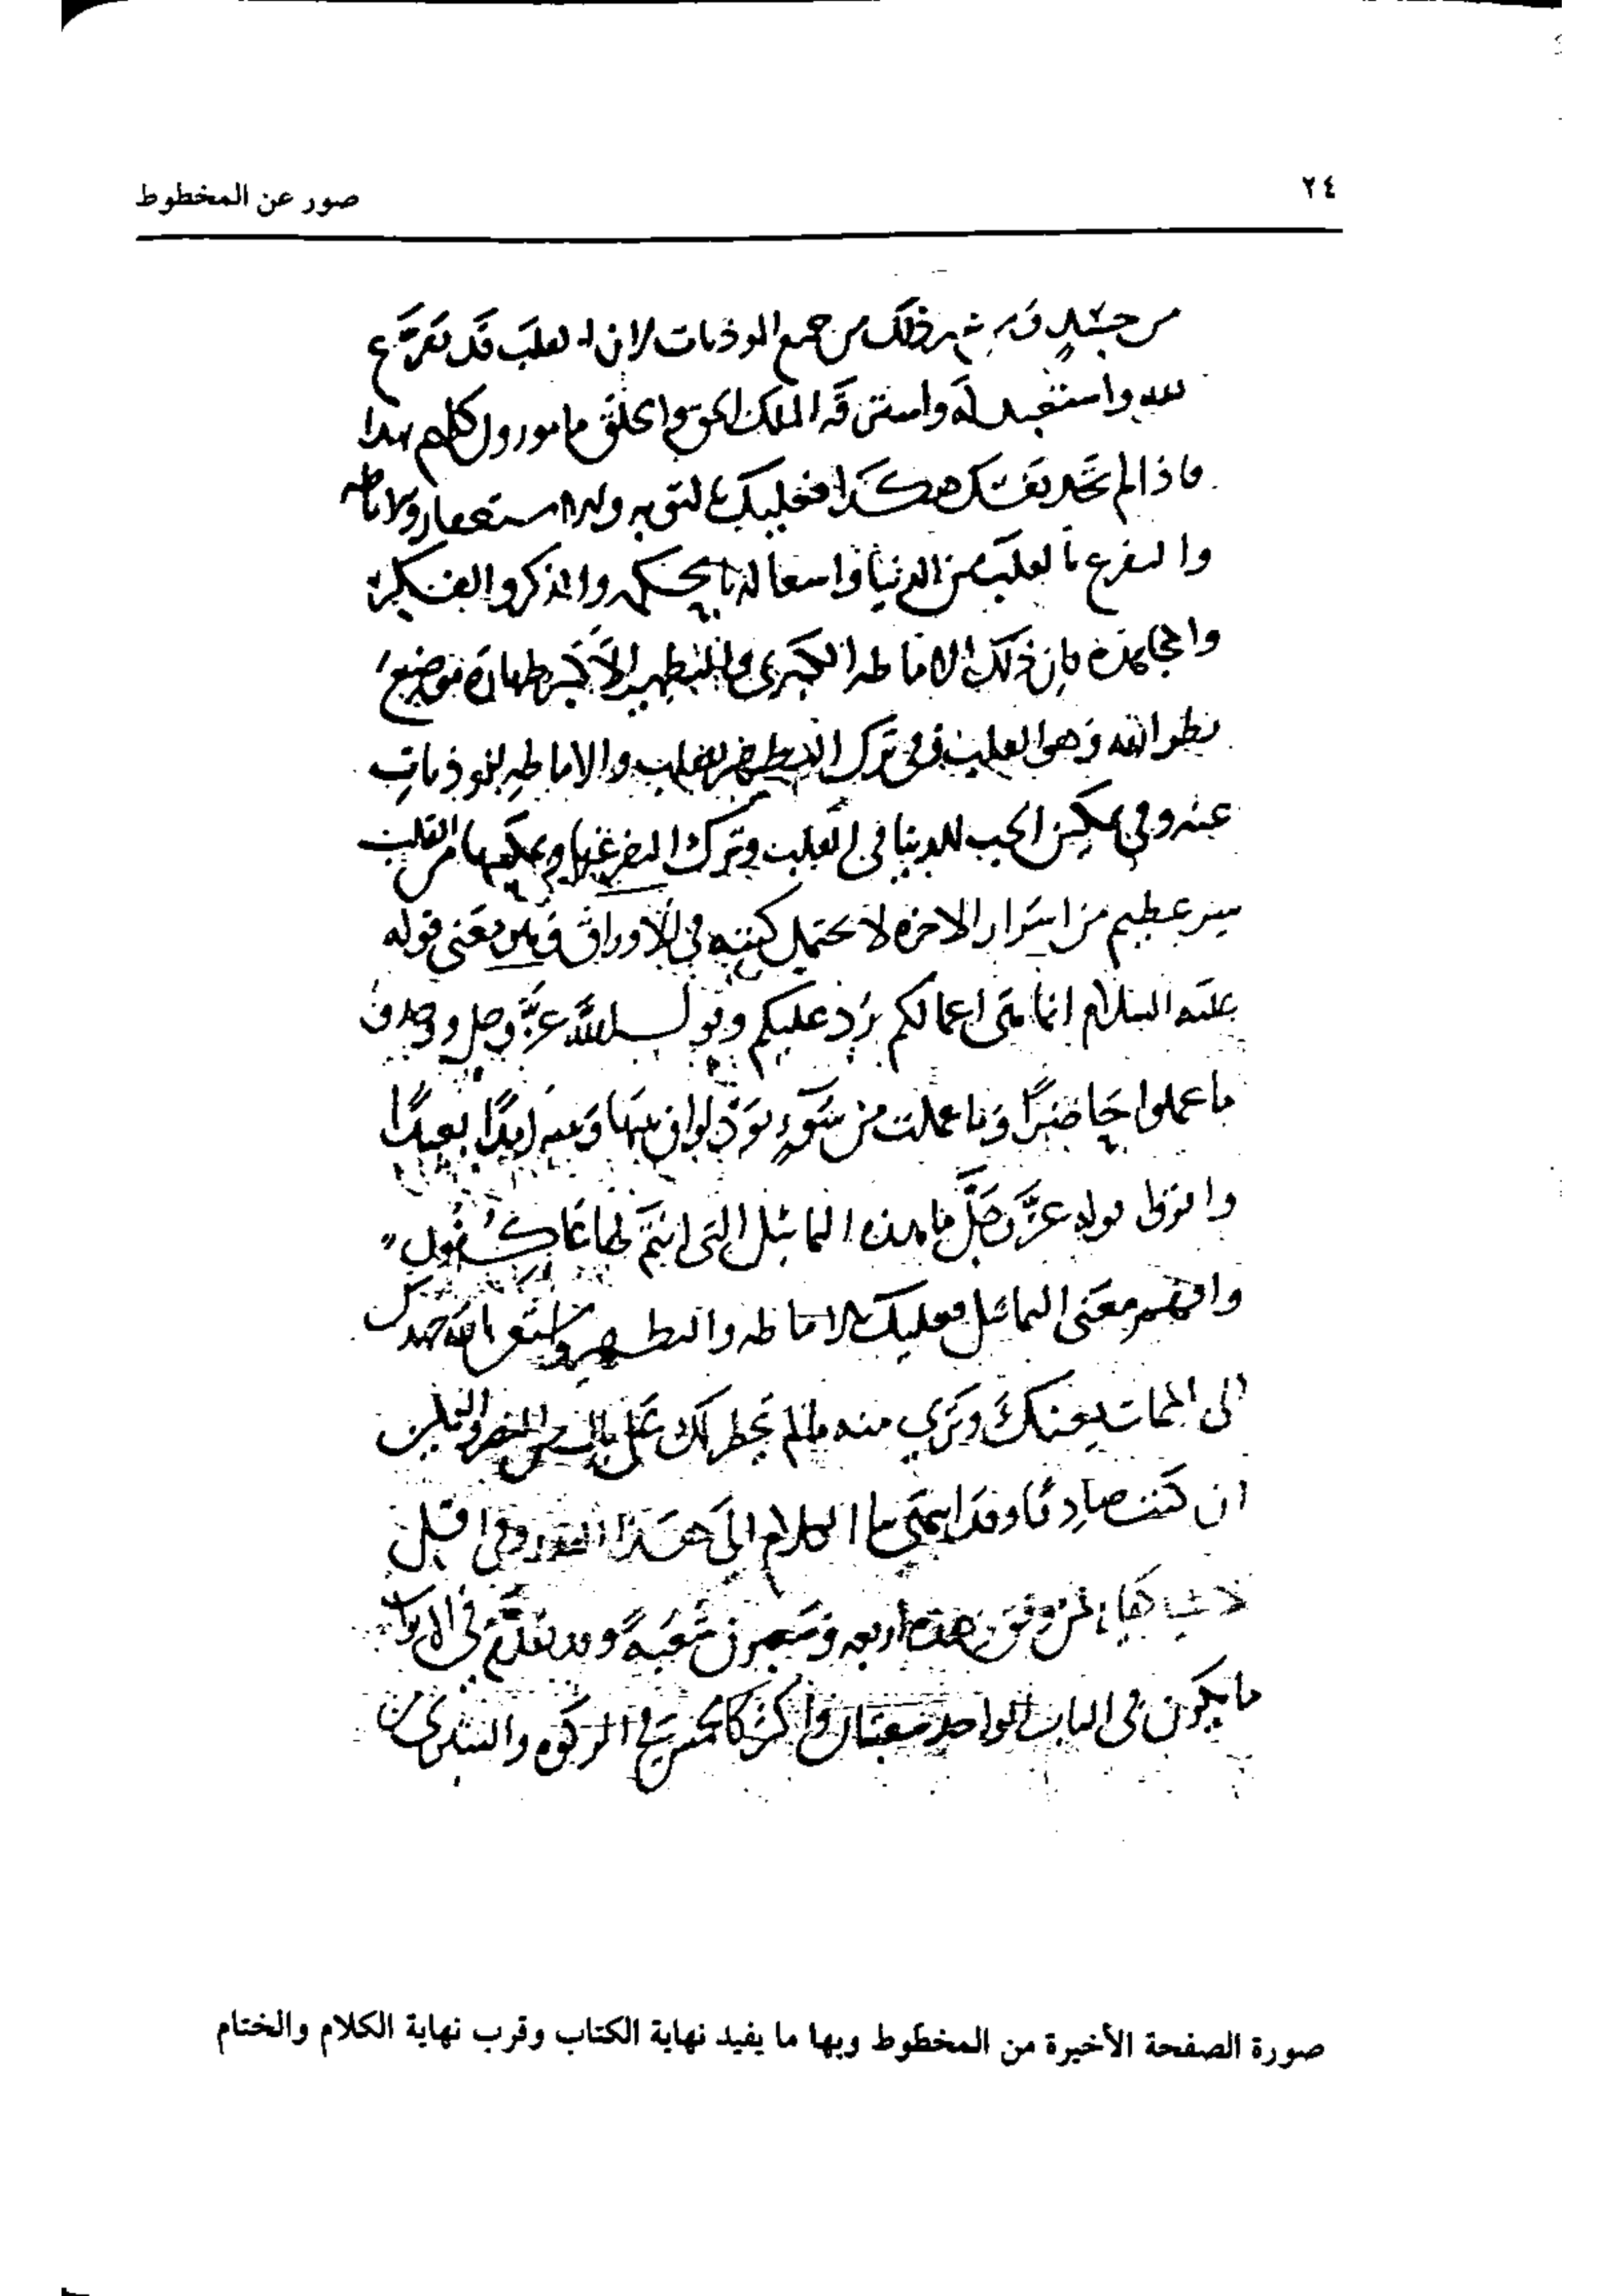 ٢٤
صور عن المخطوط
من ذلك من جميع الموذيات لان القلب قد تفرغ
لله واستعبد له واسترقه الملك الحق والخلق مامورون كلهم بهذا
فاذا لم تجد نفسك هكذا فعليك بالتوبه والاستغفار والاماطه
والتفرغ بالقلب من الدنيا واستعماله بالحكمه والذكر والفكره
والمجاهده فان ذلك الاماطه الكبرى والتطهير الأكبر طهارة موضع
نظر الله وهو القلب ففي ترك التطهير للقلب والاماطه للموذيات
عنه وفي تمكين الحب للدنيا في القلب وترك التفرغ لها من القلب
سر عظيم من اسرار الاخره لا يحتمل كتبه في الأوراق ومن معنى قوله
عليه السلام انما هي اعمالكم ترد عليكم وبقول الله عز وجل ووجدوا
ما عملوا حاضرًا وما عملت من سوء تود لو ان بينها وبينه امدًا بعيدًا
واقرا قوله عز وجل ما هذه التماثيل التي انتم لها عاكفون
وافهم معنى التماثيل فعليك بالاماطه والتطهير
الى الممات يعينك وترى منه ما لم يخطر لك على بال من
ان كنت صادقا وقد انتهى بنا الكلام إلى هذا القدر وفي اقل
من هذا لمن وفق هذه اربعه وسبعون شعبة وقد تقدم في الابواب
ما يكون في الباب الواحد شعبتان واكثر كالخمس في الزكوه
صورة الصفحة الأخيرة من المخطوط وبها ما يفيد نهاية الكتاب وقرب نهاية الكلام والختام